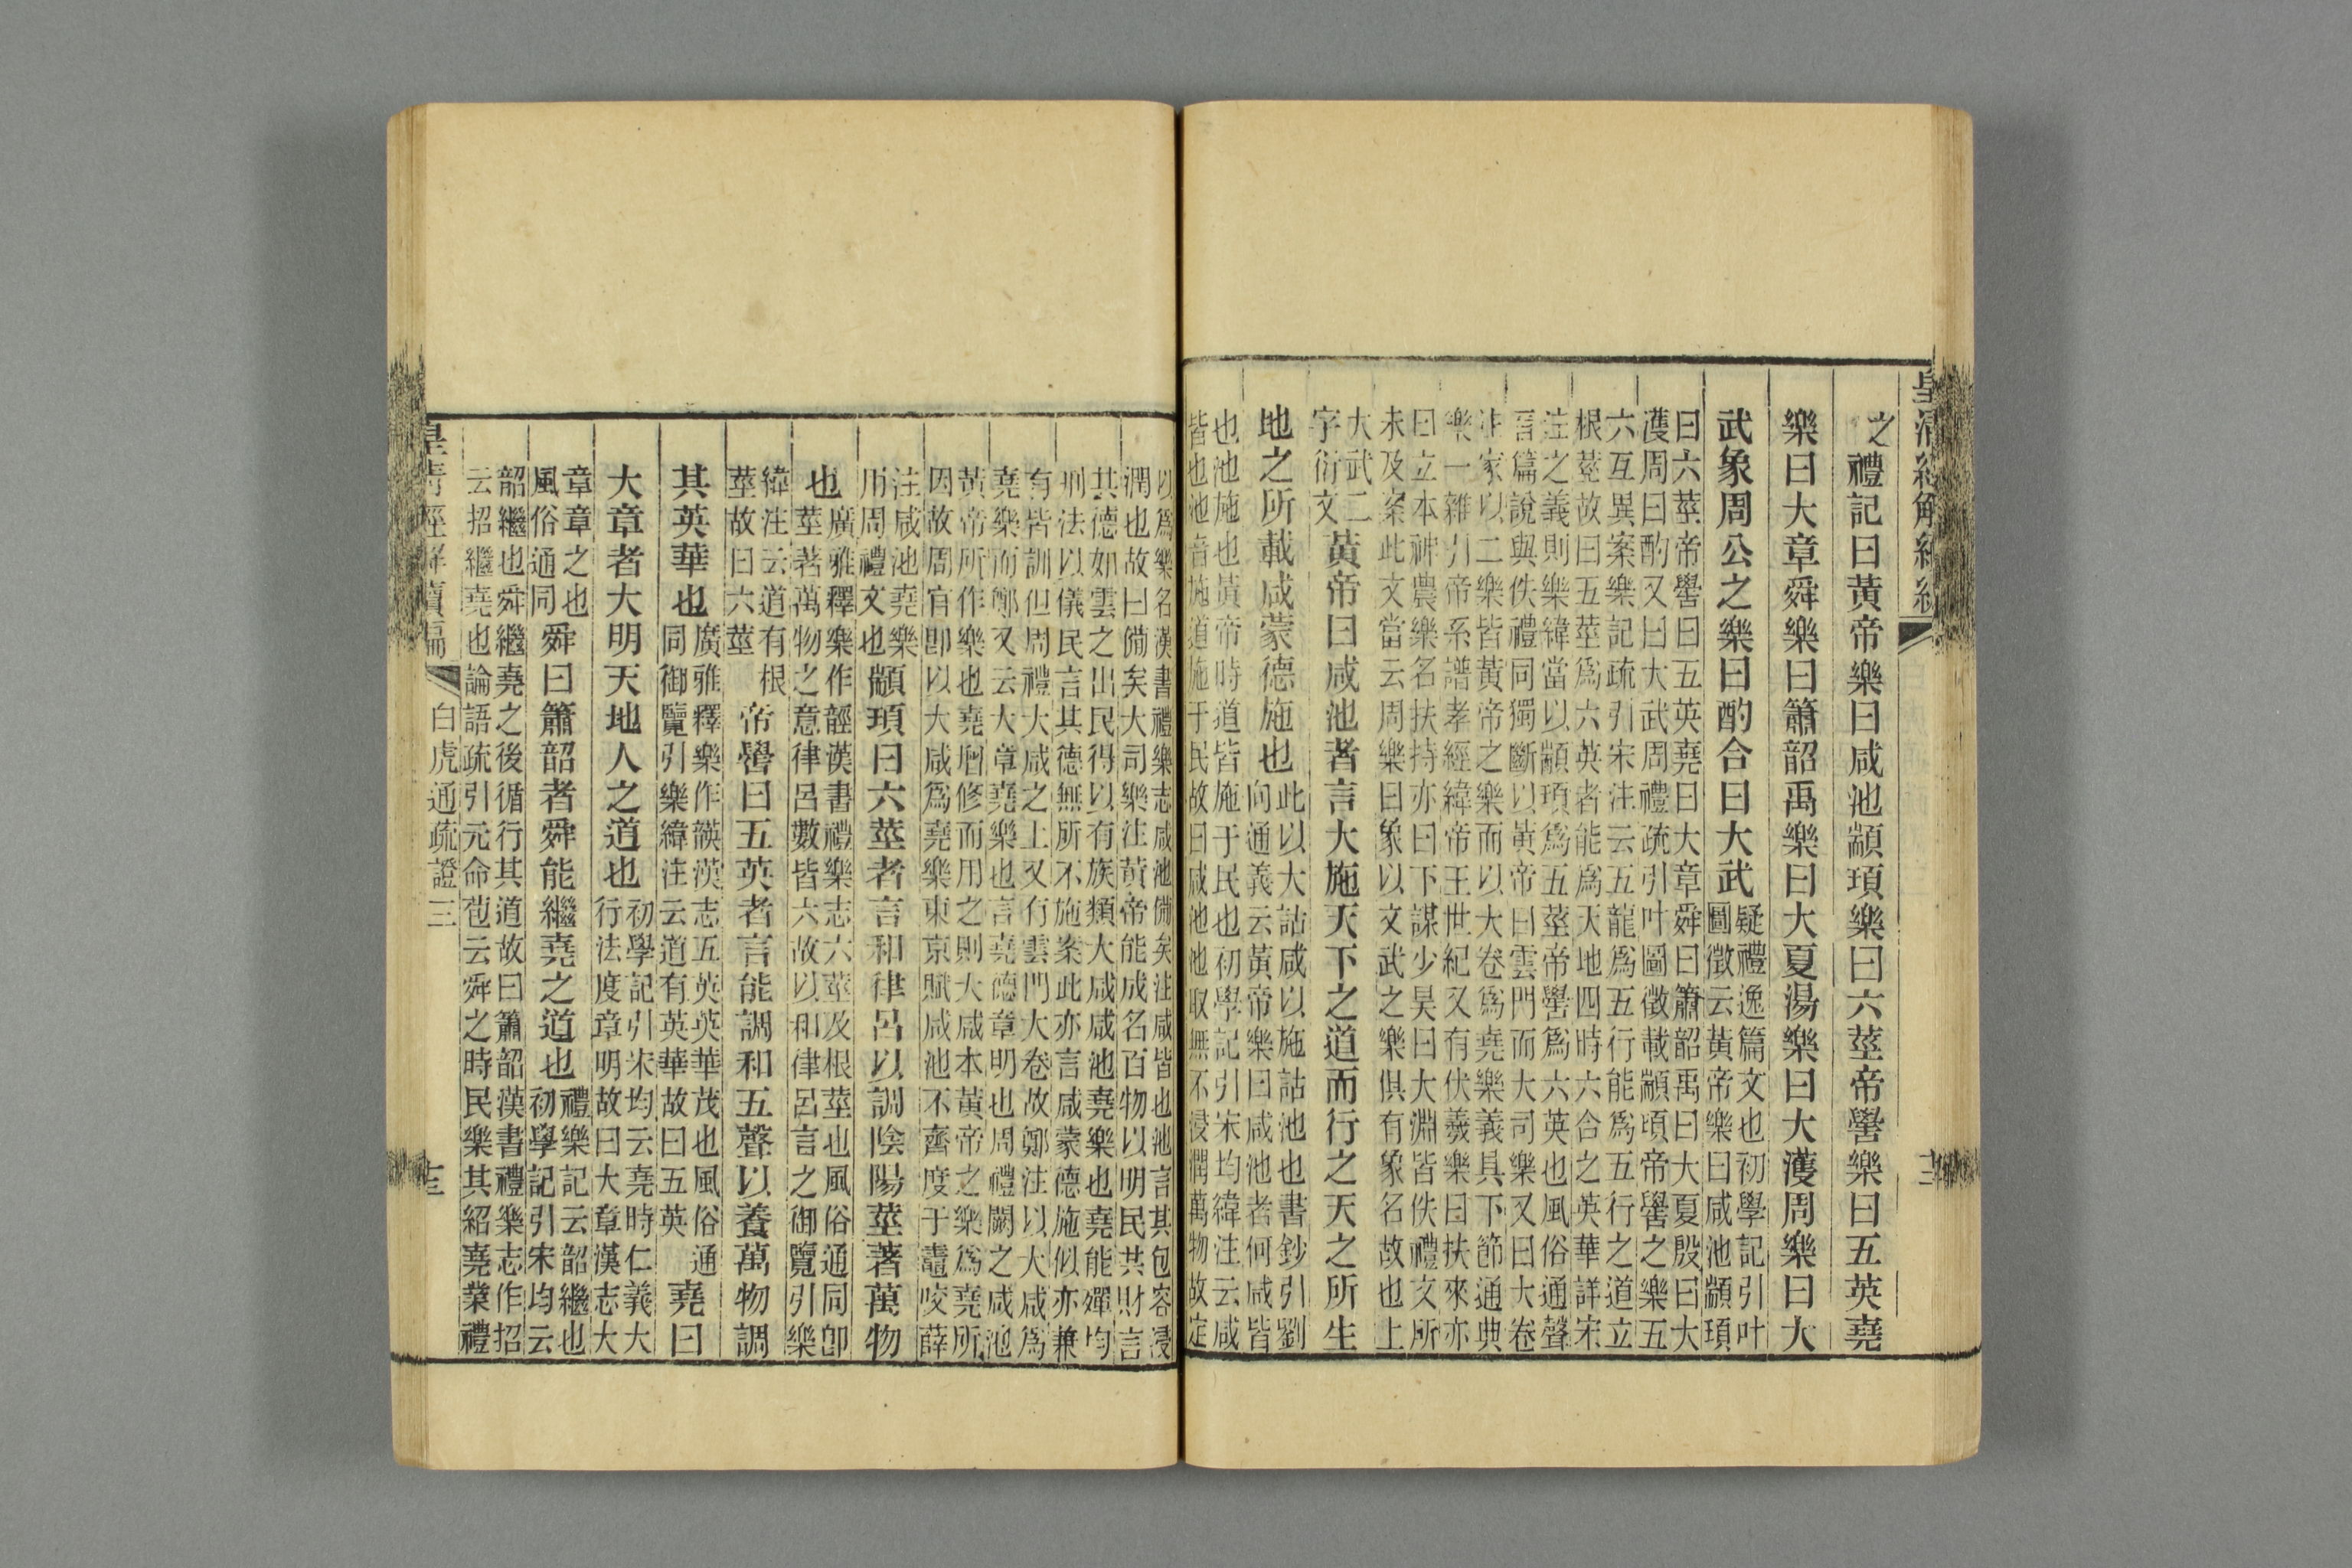 皇清經解續編
之禮記曰黃帝樂曰咸池顓頊樂曰六莖帝嚳樂曰五英堯
樂曰大章舜樂曰簫韶禹樂曰大夏湯樂曰大濩周樂曰大
武象周公之樂曰酌合曰大武疑禮逸篇文也初學記引叶
圖徵云黃帝樂曰咸池顓頊
曰六莖帝嚳曰五英堯曰大章舜曰簫韶禹曰大夏殷曰大
濩周曰酌又曰大武周禮疏引叶圖徵載顓頊帝嚳之樂五
六互異案樂記疏引宋注云五龍爲五行能爲五行之道立
根莖故曰五莖爲六英者能爲天地四時六合之英華詳宋
注之義則樂緯當以顓頊爲五莖帝嚳爲六英也風俗通聲
音篇說與佚禮同獨斷以黃帝曰雲門而大司樂又曰大卷
注家以二樂皆黃帝之樂而以大卷爲堯樂義具下節通典
樂一雜引帝系譜孝經緯帝王世紀又有伏羲樂曰扶來亦
曰立本神農樂名扶持亦曰下謀少昊曰大淵皆佚禮文所
未及案此文當云周樂曰象以文武之樂俱有象名故也上
大武二
字衍文黃帝曰咸池者言大施天下之道而行之天之所生
地之所載咸蒙德施也此以大詁咸以施詁池也書鈔引劉
向通義云黃帝樂曰咸池者何咸皆
也池施也黃帝時道皆施于民也初學記引宋均緯注云咸
皆也池音施道施于民故曰咸池池取無不浸潤萬物故定
以爲樂名漢書禮樂志咸池備矣注咸皆也池言其包容浸
潤也故曰備矣大司樂注黃帝能成名百物以明民共財言
其德如雲之出民得以有族類大咸咸池堯樂也堯能殫均
刑法以儀民言其德無所不施案此亦言咸蒙德施似亦兼
有皆訓但周禮大咸之上又有雲門大卷故鄭注以大咸爲
堯樂而鄭又云大章堯樂也言堯德章明也周禮闕之咸池
黃帝所作樂也堯增修而用之則大咸本黃帝之樂爲堯所
因故周官即以大咸爲堯樂東京賦咸池不齊度于鼃咬薛
注咸池堯樂
用周禮文也顓頊曰六莖者言和律呂以調陰陽莖著萬物
也廣雅釋樂作䪫漢書禮樂志六莖及根莖也風俗通同卽
莖著萬物之意律呂數皆六故以和律呂言之御覽引樂
緯注云道有根
莖故曰六莖帝嚳曰五英者言能調和五聲以養萬物調
其英華也廣雅釋樂作韺漢志五英英華茂也風俗通
同御覽引樂緯注云道有英華故曰五英堯曰
大章者大明天地人之道也初學記引宋均云堯時仁義大
行法度章明故曰大章漢志大
章章之也
風俗通同舜曰簫韶者舜能繼堯之道也禮樂記云韶繼也
初學記引宋均云
韶繼也舜繼堯之後循行其道故曰簫韶漢書禮樂志作招
云招繼堯也論語疏引元命苞云舜之時民樂其紹堯業禮
皇清經解續編
白虎通疏證三